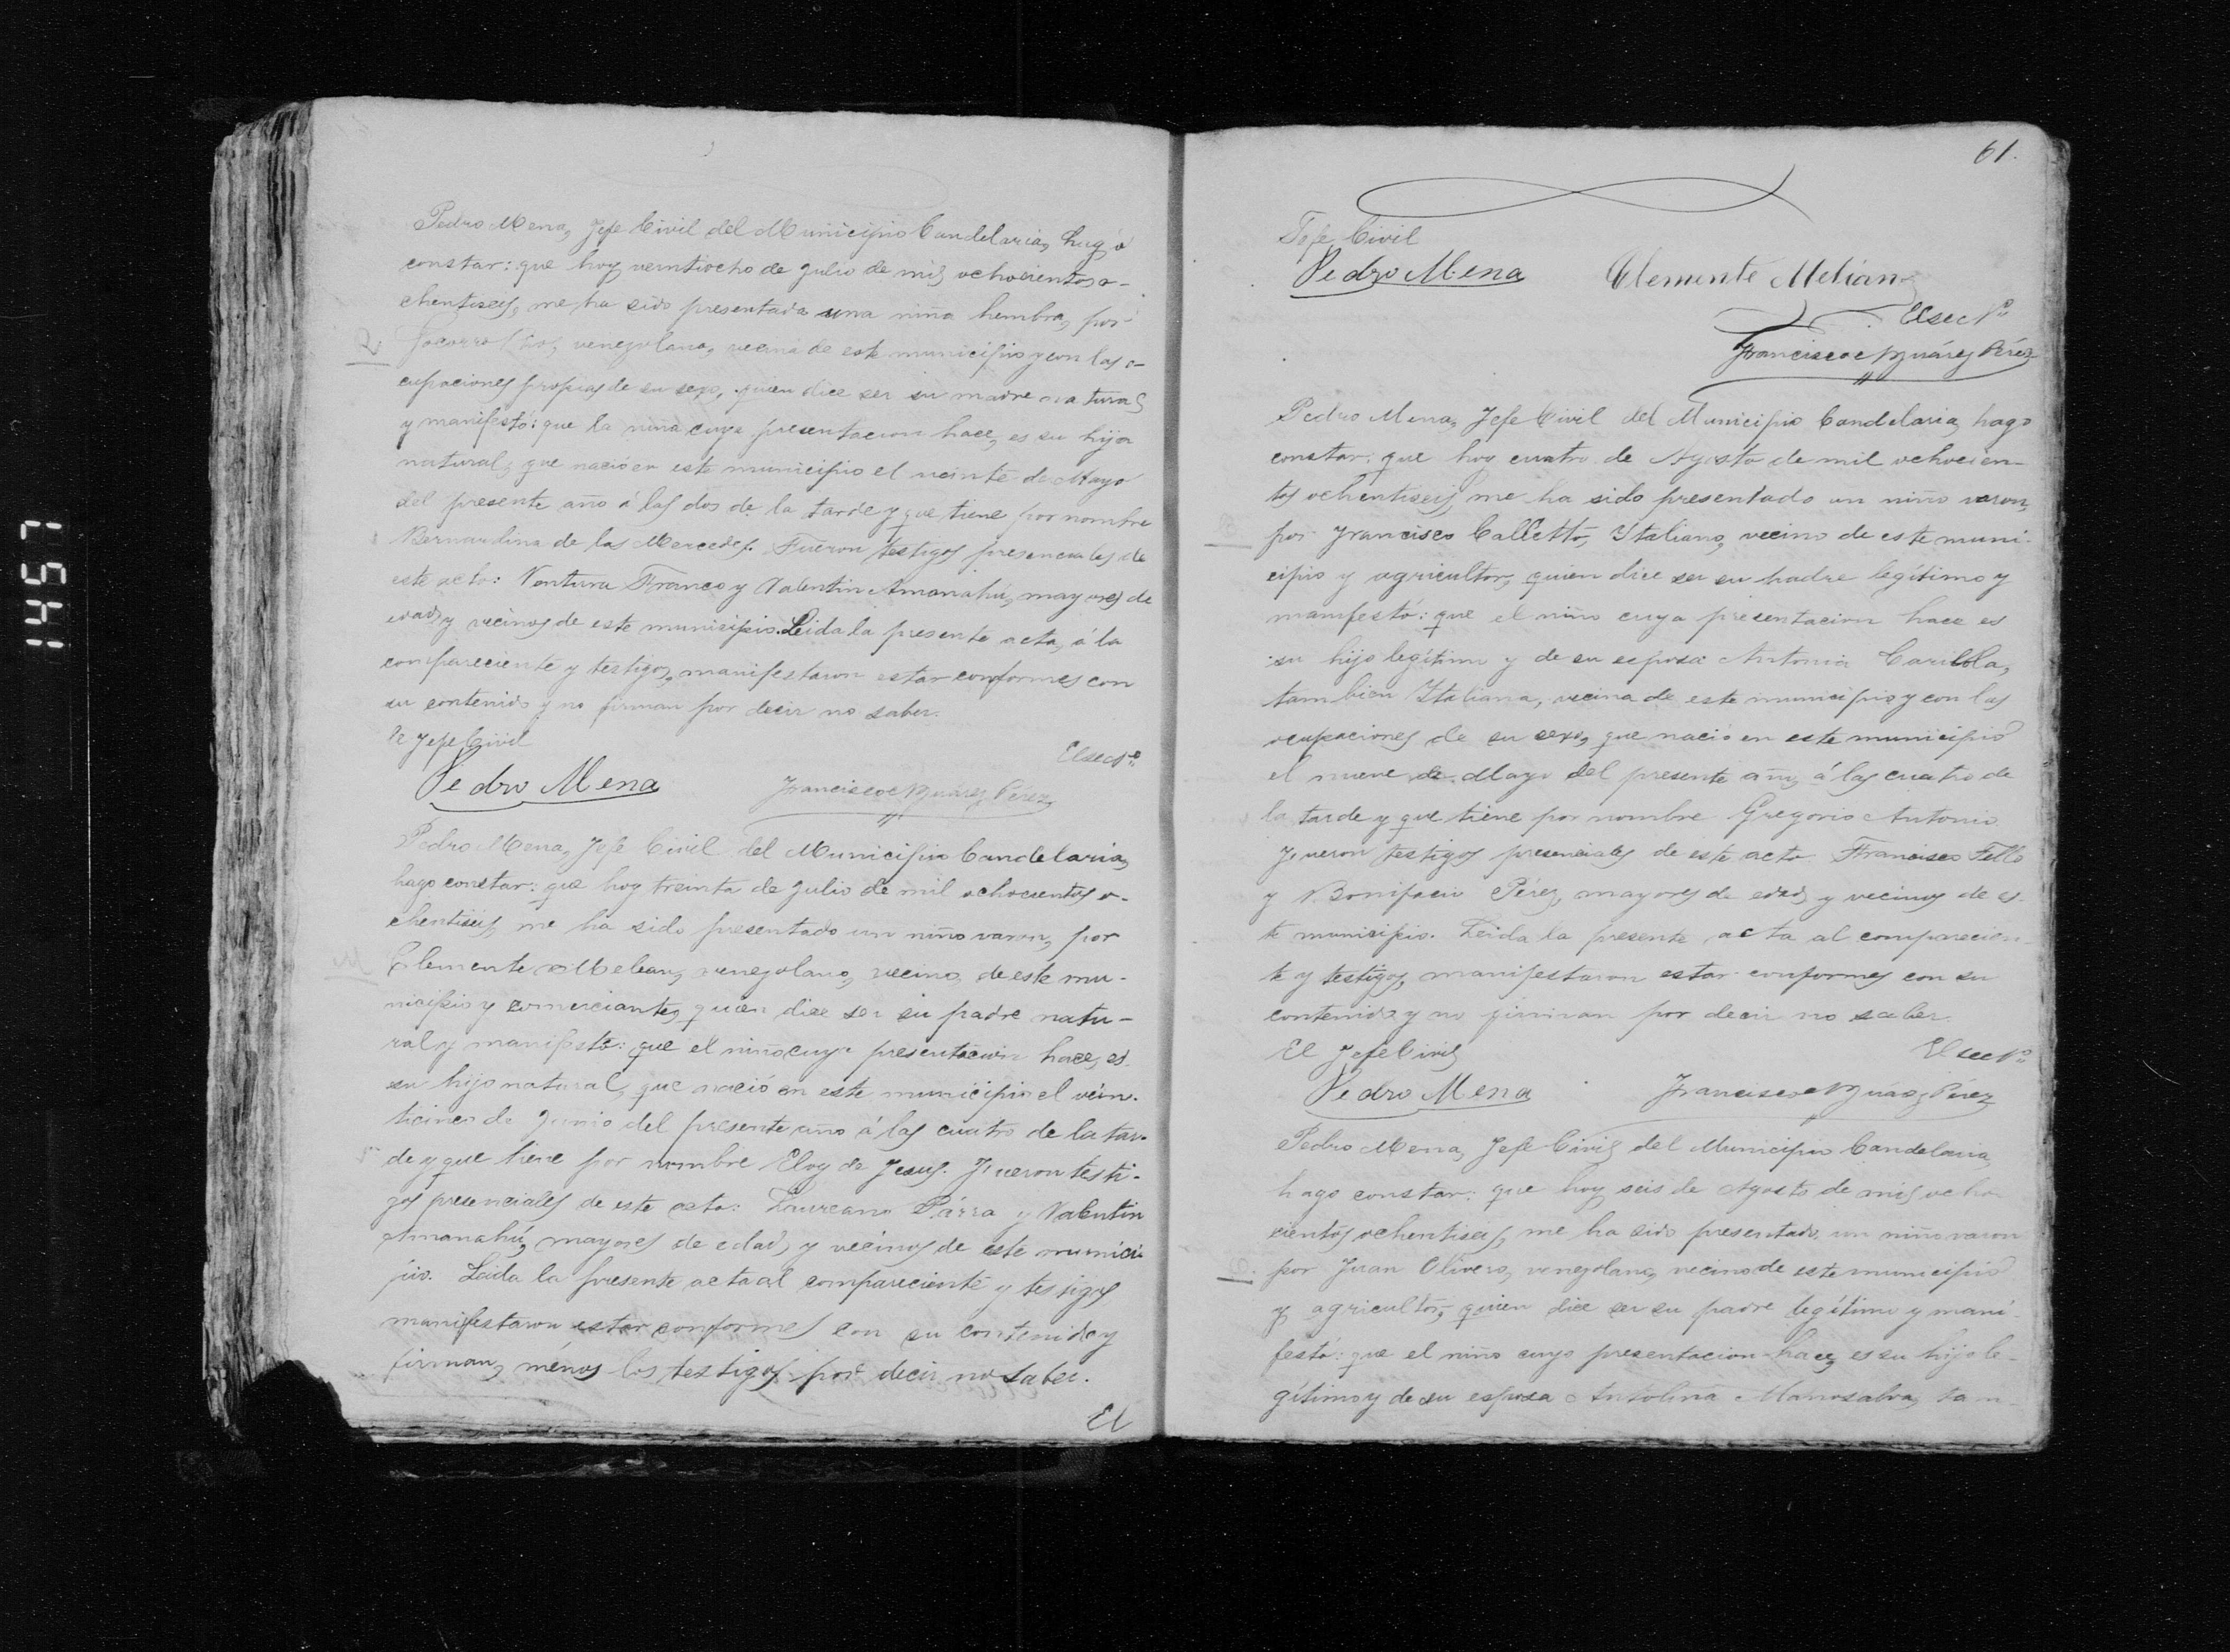 Pedro Mena, Jefe Civil del Municipio Candelaria, hago
constar: que hoy veintiocho de Julio de mil ochocientos o-
chentiseis, me ha sido presentada una niña hembra, por
Socorro venezolana, vecina de este municipio y con las o-
cupaciones propias de su sexo, quien dice ser su madre natural
y manifestó: que la niña cuya presentacion hace, es su hija
natural, que nació en este municipio el veinte de Mayo
del presente año á las dos de la tarde y que tiene por nombre
Bernardina de las Mercedes. Fueron testigos presenciales de
este acto: Ventura Franco y Valentin Amanahú, mayores de
edad y vecinos de este municipio. Leida la presente acta, á la
compareciente y testigos, manifestaron estar conformes con
su contenido y no firman por decir no saber.
Jefe Civil
El secrº
Pedro Mena Francisco Pérez
Pedro Mena, Jefe Civil del Municipio Candelaria,
hago constar: que hoy treinta de Julio de mil ochocientos o-
chentiseis, me ha sido presentado un niño varon, por
Clemente Melean, venezolano, vecino de este mu-
nicipio y comerciante, quien dice ser su padre natu-
ral y manifestó: que el niño cuya presentación hace, es
su hijo natural, que nació en este municipio el vein-
ticinco de Junio del presente año á las cuatro de la tar-
de y que tiene por nombre Eloy de Jesus. Fueron testi-
gos presenciales de este acto: Laureano Párra y Valentin
Amanahú, mayores de edad y vecinos de este munici
pio. Leida la presente acta al compareciente y testigos
manifestaron estar conformes con su contenido y
firman, ménos los testigos por decir no saber.
El
61.
Jefe Civil
Pedro Mena Clemente Melian
El secrº
Francisco Pérez
Pedro Mena, Jefe Civil del Municipio Candelaria, hago
constar: que hoy cuatro de Agosto de mil ochocien-
tos ochentiseis, me ha sido presentado un niño varon,
por Francisco Calletto, Italiano, vecino de este muni-
cipio y agricultor, quien dice ser su padre legítimo y
manifestó: que el niño cuya presentacion hace es
su hijo legítimo y de su esposa Antonia
tambien Italiana, vecina de este municipio y con las
ocupaciones de su sexo, que nació en este municipio
el nueve de Mayo del presente año, á las cuatro de
la tarde y que tiene por nombre Gregorio Antonio
Fueron testigos presenciales de este acto Francisco Tello
y Bonifacio Pérez, mayores de edad y vecinos de es-
te municipio. Leida la presente acta al comparecien-
te y testigos, manifestaron estar conformes con su
contenido y no firman por decir no saber.
El Jefe Civil
El secrº
Pedro Mena Francisco Pérez
Pedro Mena, Jefe Civil del Municipio Candelaria,
hago constar: que hoy seis de Agosto de mil ocho
cientos ochentiseis, me ha sido presentado un niño varon
por Juan Olivero, venezolano, vecino de este municipio
y agricultor, quien dice ser su padre legítimo y mani-
festó: que el niño cuya presentacion hace, es su hijo le-
gítimo y de su esposa Antolina Manosalva, tam-
1457